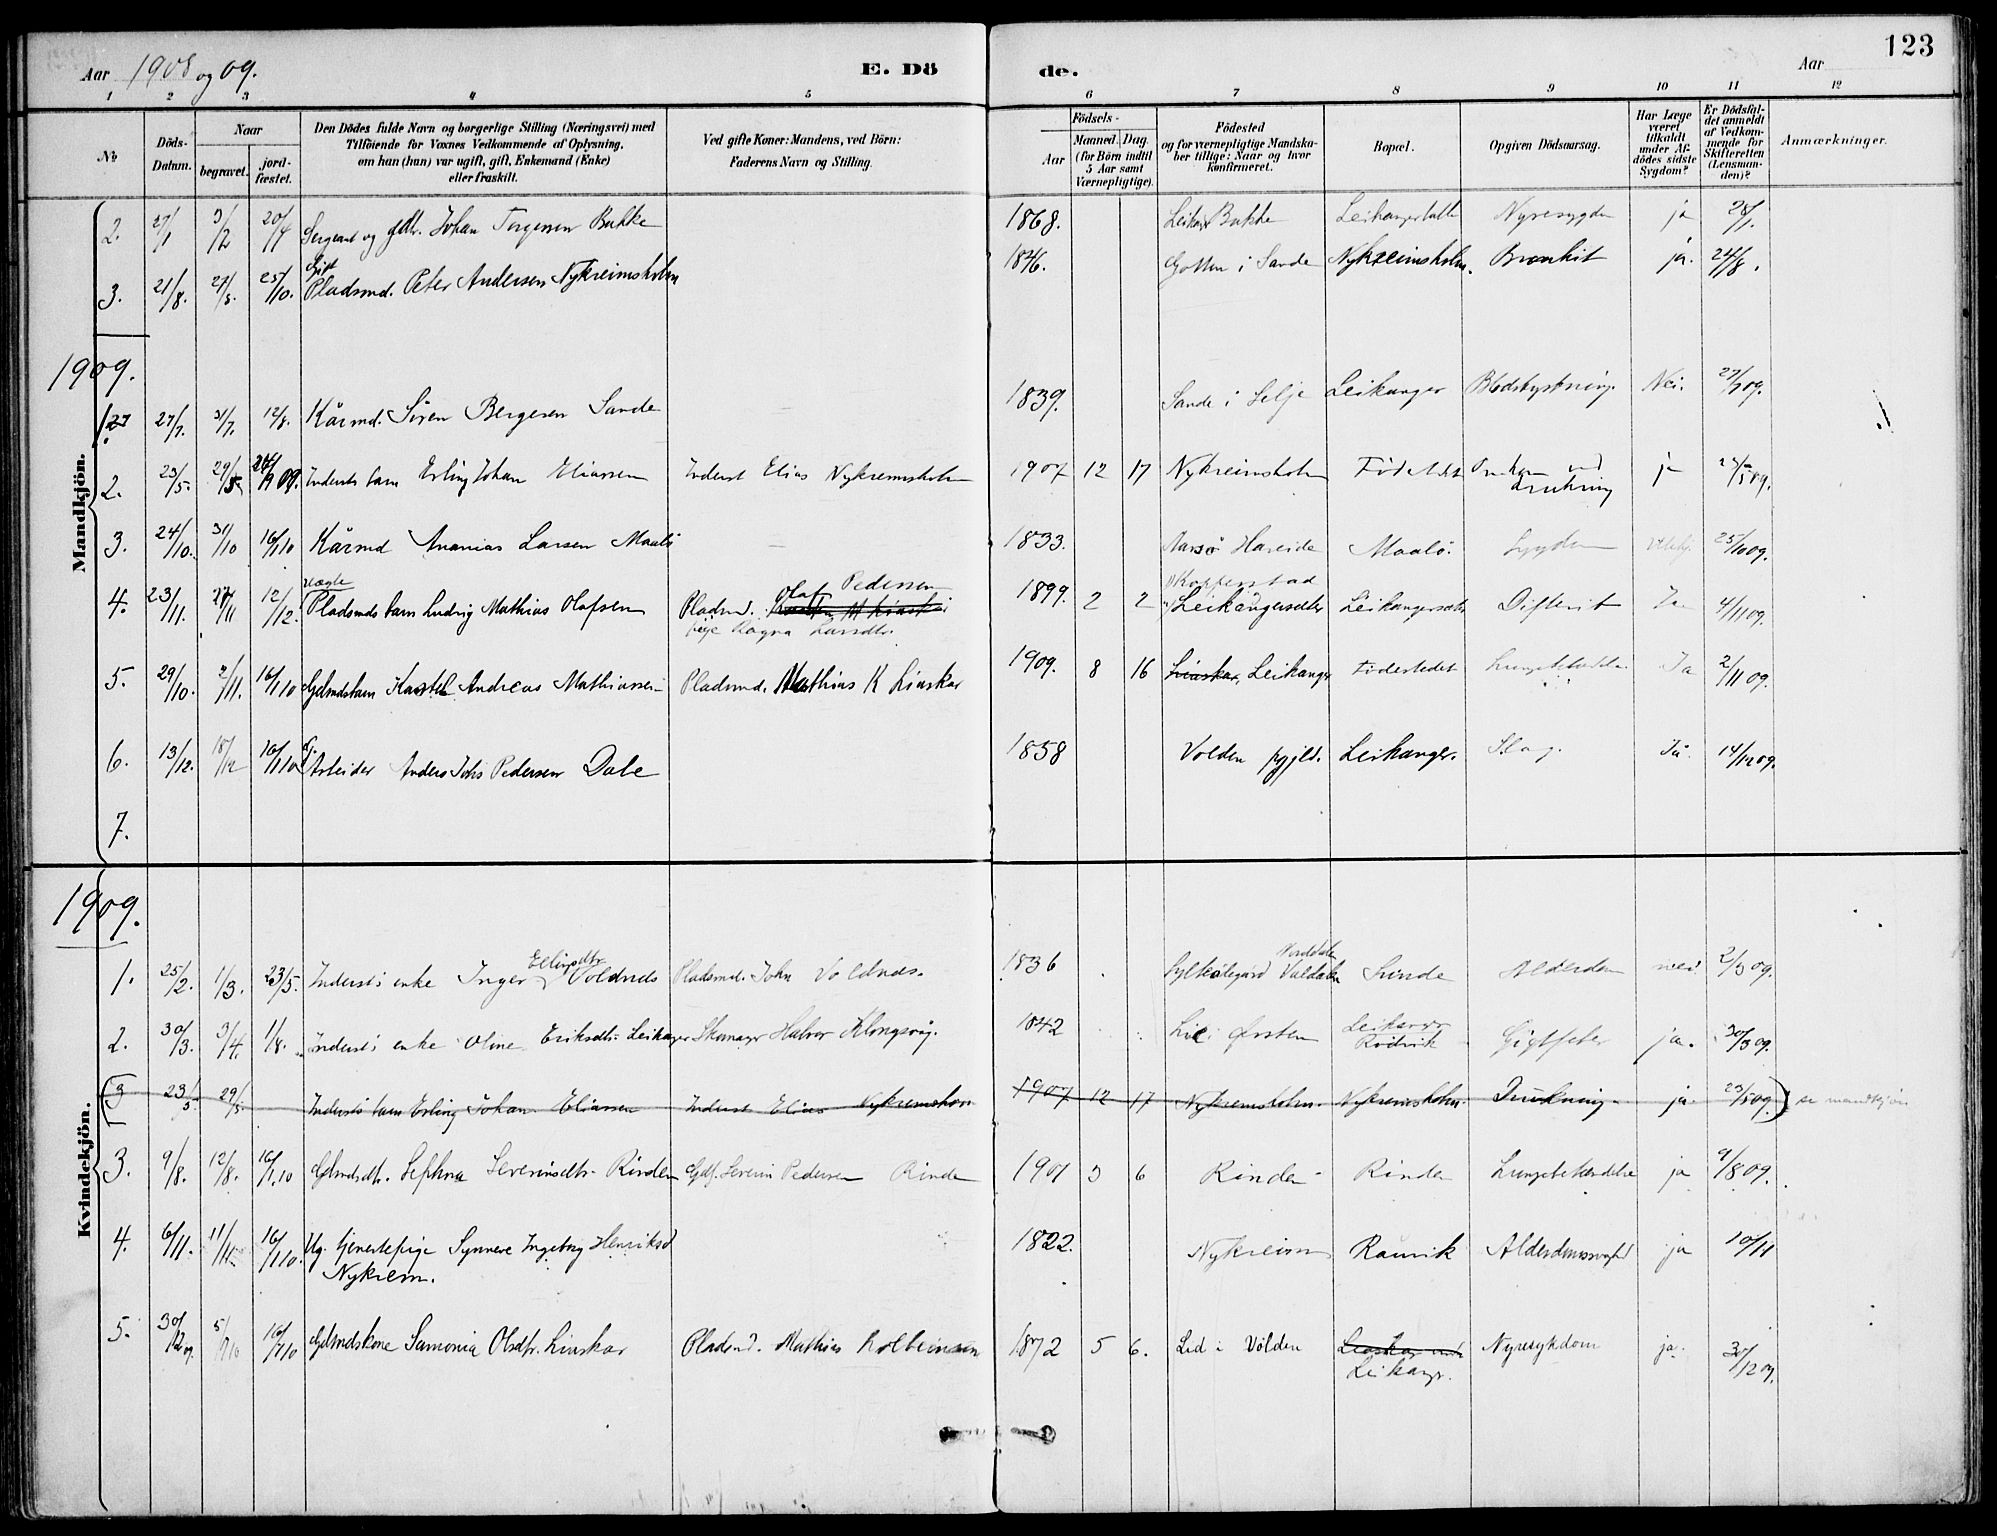 Aar 1908 og 09. E. Dö de. Aar 123
1 2 3 4 5 6 7 8 9 10 11 12
No
Döds-Datum.
Naar
begravet.
jord-fæstet.
Den Dödes fulde Navn og borgerlige Stilling (Næringsvei) med
Tilföiende for Voxnes Vedkommende af Oplysning,
om han (hun) var ugift, gift, Enkemand (Enke)
eller fraskilt.
Ved gifte Koner: Mandens, ved Börn:
Faderens Navn og Stilling.
Födsels-
Aar
Maaned. Dag.
(for Börn indtil
5 Aar samt
Værnepligtige).
Födested
og for værnepligtige Mandska-
ber tillige: Naar og hvor
Konfirmeret.
Bopæl.
Opgiven Dödsaarsag.
Har Læge
været
tilkaldt
under Af-
dödes sidste
Sygdom?
Er Dödsfal-
det anmeldt
af Vedkom-
mende for
Skifteretten
(Lensman-
den)?
Anmærkninger.
Mandkjön.
2. 27/1 3/2 20/4 Sergeant og gdbr. Johan Bakke 1868. Bakke Nyresygdom ja 28/1.
Gift
3. 21/8. 27/8. 25/10. Pladsmd. Peter Andersen Nykreimsholm 1846. i Sande Nykreimsholm. Bronkit ja. 24/8.
1909.
27/7. 31/7. 12/8. Kårmd. Sören Bergesen Sande 1839. Sande i Selje Leikanger Blodstyrtning. Nei. 27/7 09.
2. 23/5. 29/5 Inderstsbarn Erling Johan Eliassen Inderst Elias Nykreimsholm 1907 12 17 Nykreimsholm Födestedet ved drukning ja 23/5 09.
3. 24/10. 31/10 16/1 10 Kårmd Ananias Larsen Maalö 1833. Hareide Maalö. Sygdom 25/10 09.
uægte Olaf Pedersen Kopperstad
4. 23/11. 27/11 12/12. Pladsmds barn Ludvig Mathias Olafsen Pladsmd. 1899. 2 2 Leikangersæter Leikangersæter Difterit Ja 4/11 09.
pige Ragna Larsdtr.
5. 29/10. 2/11. 16/1 10 Gdmdsbarn Karstel Andreas Mathiassen Pladsmd. Mathias K Liaskar 1909. 8 16 Liaskar, Leikanger Födestedet Ja 2/11 09.
6. 13/12. 18/12 16/1 10 Arbeider Anders Johs Pedersen Dale 1858 Volden pgjld. Leikanger. Slag. Ja 14/12 09.
7.
Kvindekjön.
1909.
Ellingsdtr.
1. 25/2. 1/3. 23/5. Inderst's enke Inger Voldnes Pladsmd. John Voldnes. 1836 Valdalen Sunde Alderdom nei 2/3 09.
2. 30/3. 3/4. 1/8. Inderst's enke Oline Eriksdtr. Leikanger Skomager Halvor Klongsvig. 1842 Lie Örsten Gigtfeber ja. 30/3 09.
Rödvik
(3 23/5. 29/5. Inderst's barn Erling Johan Eliassen Inderst Elias Nykremsholm 1907 12 17 Nykremsholm. Nykremsholm. Drukning. ja 23/5 09.) se mandkjön
3. 9/8. 12/8. 16/1 10 Gdmdsdtr. Sefhna Severinsdtr. Rinden Gdb. Severin Pedersen Rinde 1901 3 6 Rinden Rinden Lungebetændelse ja 9/8 09.
4. 6/11. 11/11. 16/1 10. Ug. tjenestepige Synneve Ingeborg Henriksd 1822. Nykreim Raunik Alderdomssvaghed ja 10/11
Nykrem.
5. 30/12 09. 5/1 10 16/1 10 Gdmdskone Samonia Olsdtr. Liaskar Pladsmd. Mathias Kolbeinsen 1872 5 6. Lid i Volden Nyresykdom ja. 30/12 09.
Leikangr.